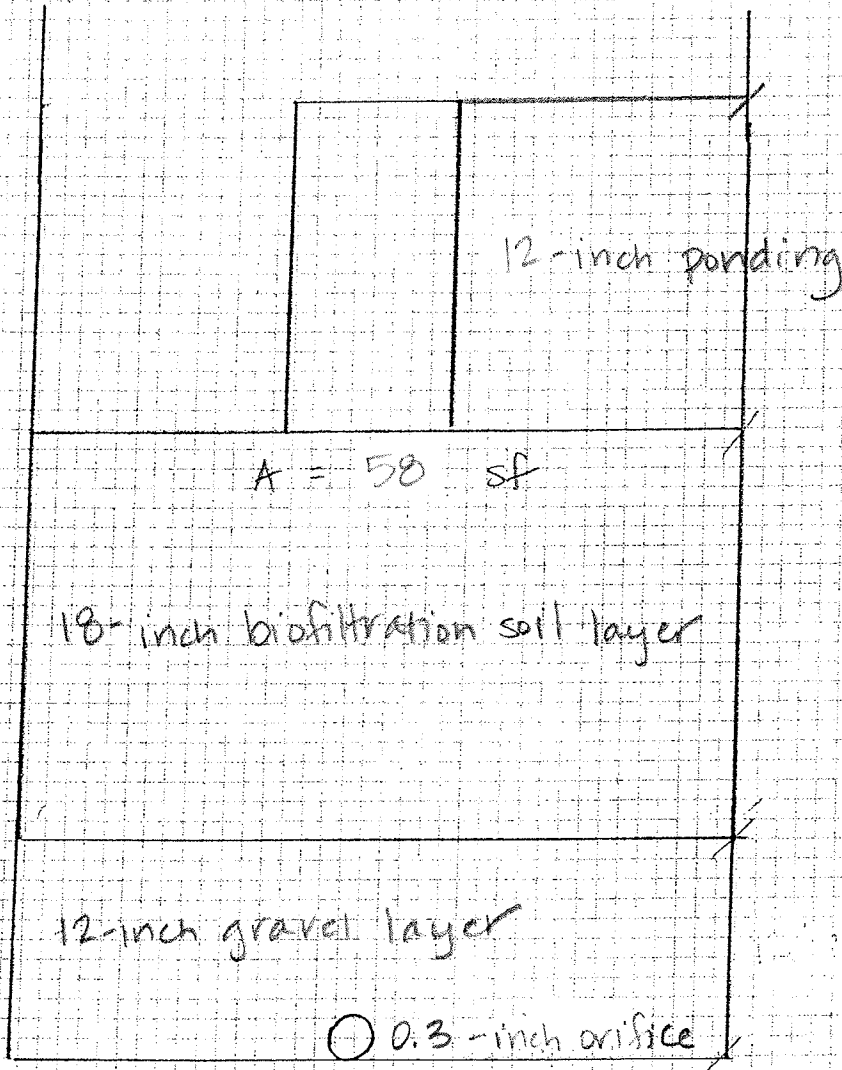 12-inch ponding
A = 58 sf
18-inch biofiltration soil layer
12-inch gravel layer
0.3-inch orifice